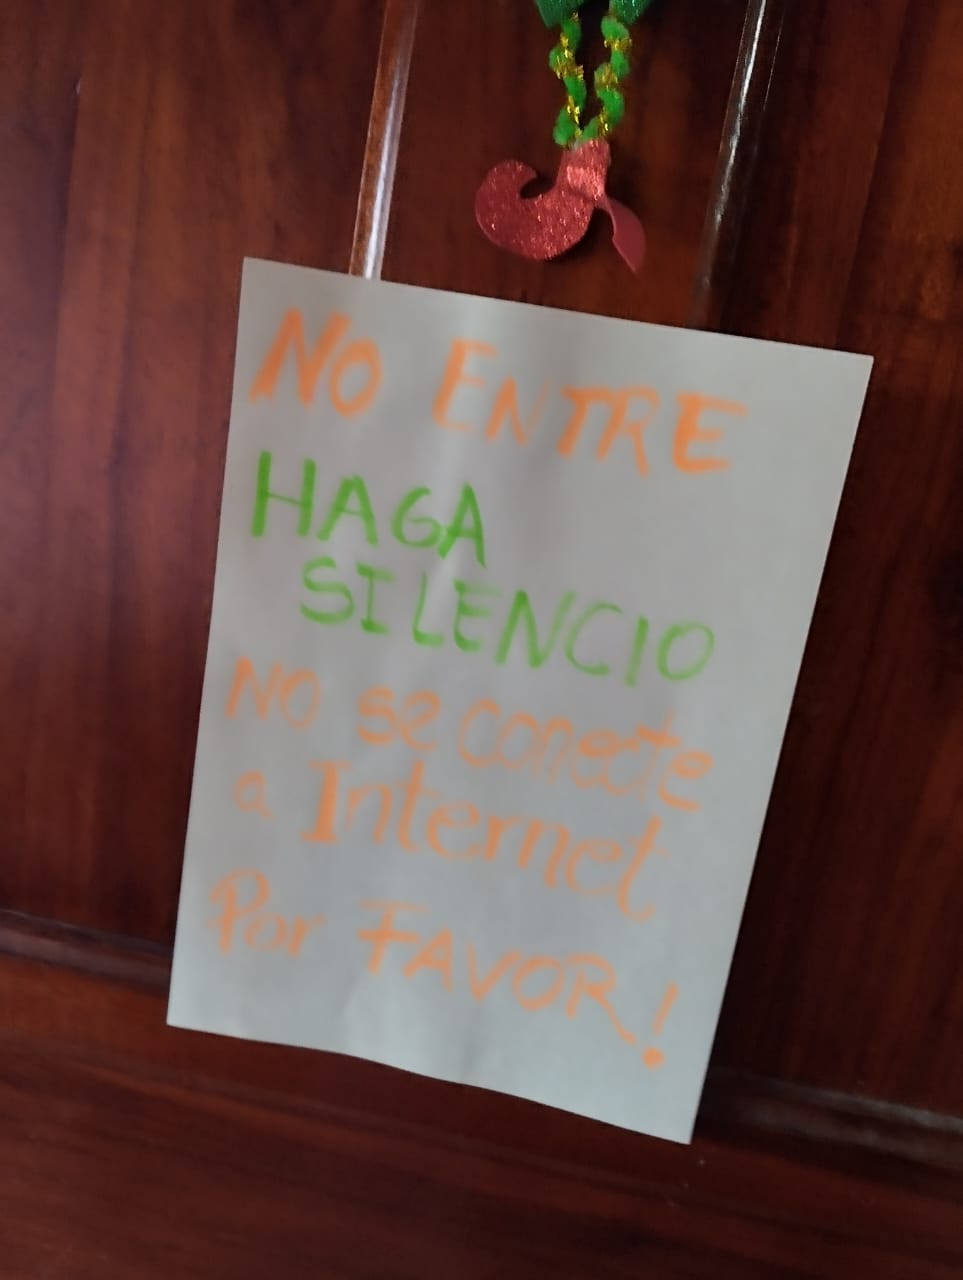 NO ENTRE
HAGA
SILENCIO
NO se conecte
a Internet
Por FAVOR!